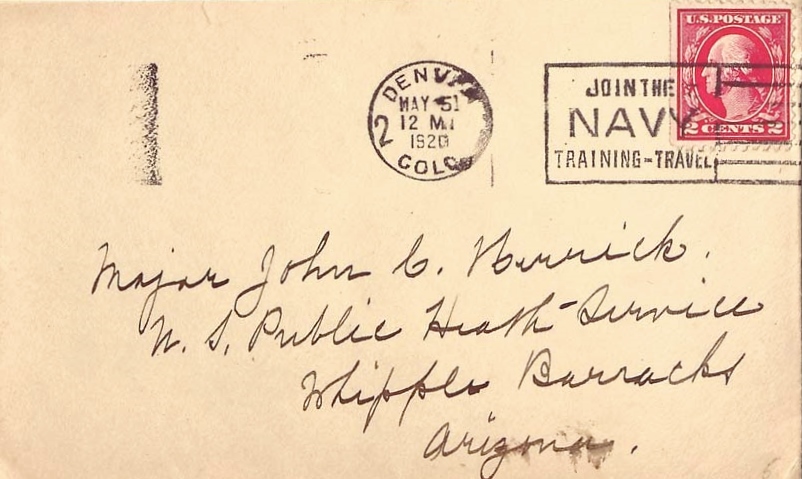 U.S. POSTAGE
2 CENTS 2
DENV
MAY 51
12 M
2
1920
COLO
JOIN THE
NAVY
TRAINING-TRAVEL
Major John C. Herrick.
U. S. Public Heath Service
Whipple Barracks
Arizona.